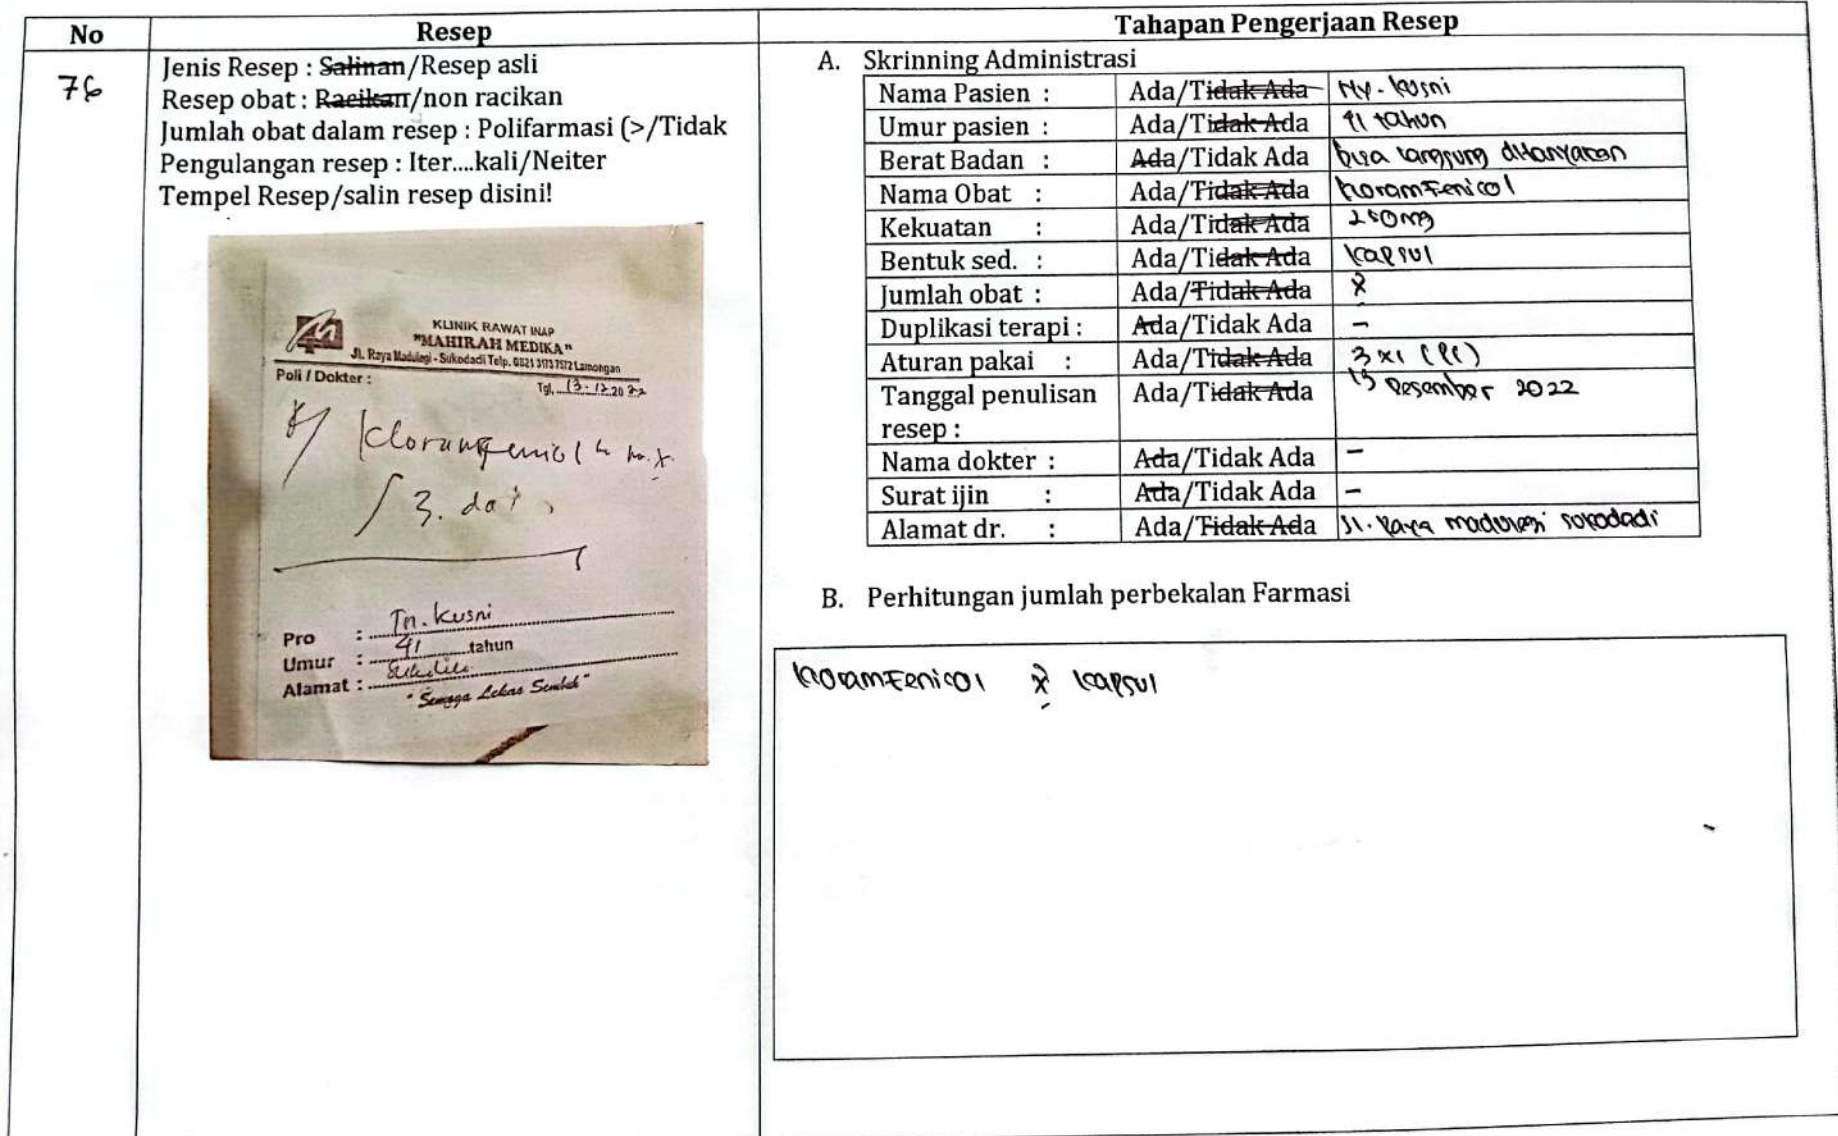 No Resep Tahapan Pengerjaan Resep
76
Jenis Resep : Salinan/Resep asli
Resep obat : Racikan/non racikan
Jumlah obat dalam resep : Polifarmasi (>/Tidak
Pengulangan resep : Iter....kali/Neiter
Tempel Resep/salin resep disini!
KLINIK RAWAT INAP
"MAHIRAH MEDIKA"
Jl. Raya Madulegi - Sukodadi Telp. 0821 3173 7572 Lamongan
Poli / Dokter :
Tgl, 13-12 2022
R/ Kloramfenicol no. X
Pro : Tn. Kusni
Umur : 41 tahun
Alamat :
"Semoga Lekas Sembuh"
A. Skrinning Administrasi
Nama Pasien : Ada/Tidak Ada Ny. Kusni
Umur pasien : Ada/Tidak Ada 41 tahun
Berat Badan : Ada/Tidak Ada bisa langsung ditanyakan
Nama Obat : Ada/Tidak Ada kloramfenicol
Kekuatan : Ada/Tidak Ada 250mg
Bentuk sed. : Ada/Tidak Ada kapsul
Jumlah obat : Ada/Tidak Ada X
Duplikasi terapi : Ada/Tidak Ada -
Aturan pakai : Ada/Tidak Ada 3x1 (PC)
Tanggal penulisan Ada/Tidak Ada 13 Desember 2022
resep :
Nama dokter : Ada/Tidak Ada -
Surat ijin : Ada/Tidak Ada -
Alamat dr. : Ada/Tidak Ada Jl. Raya madulegi sukodadi
B. Perhitungan jumlah perbekalan Farmasi
kloramfenicol X kapsul